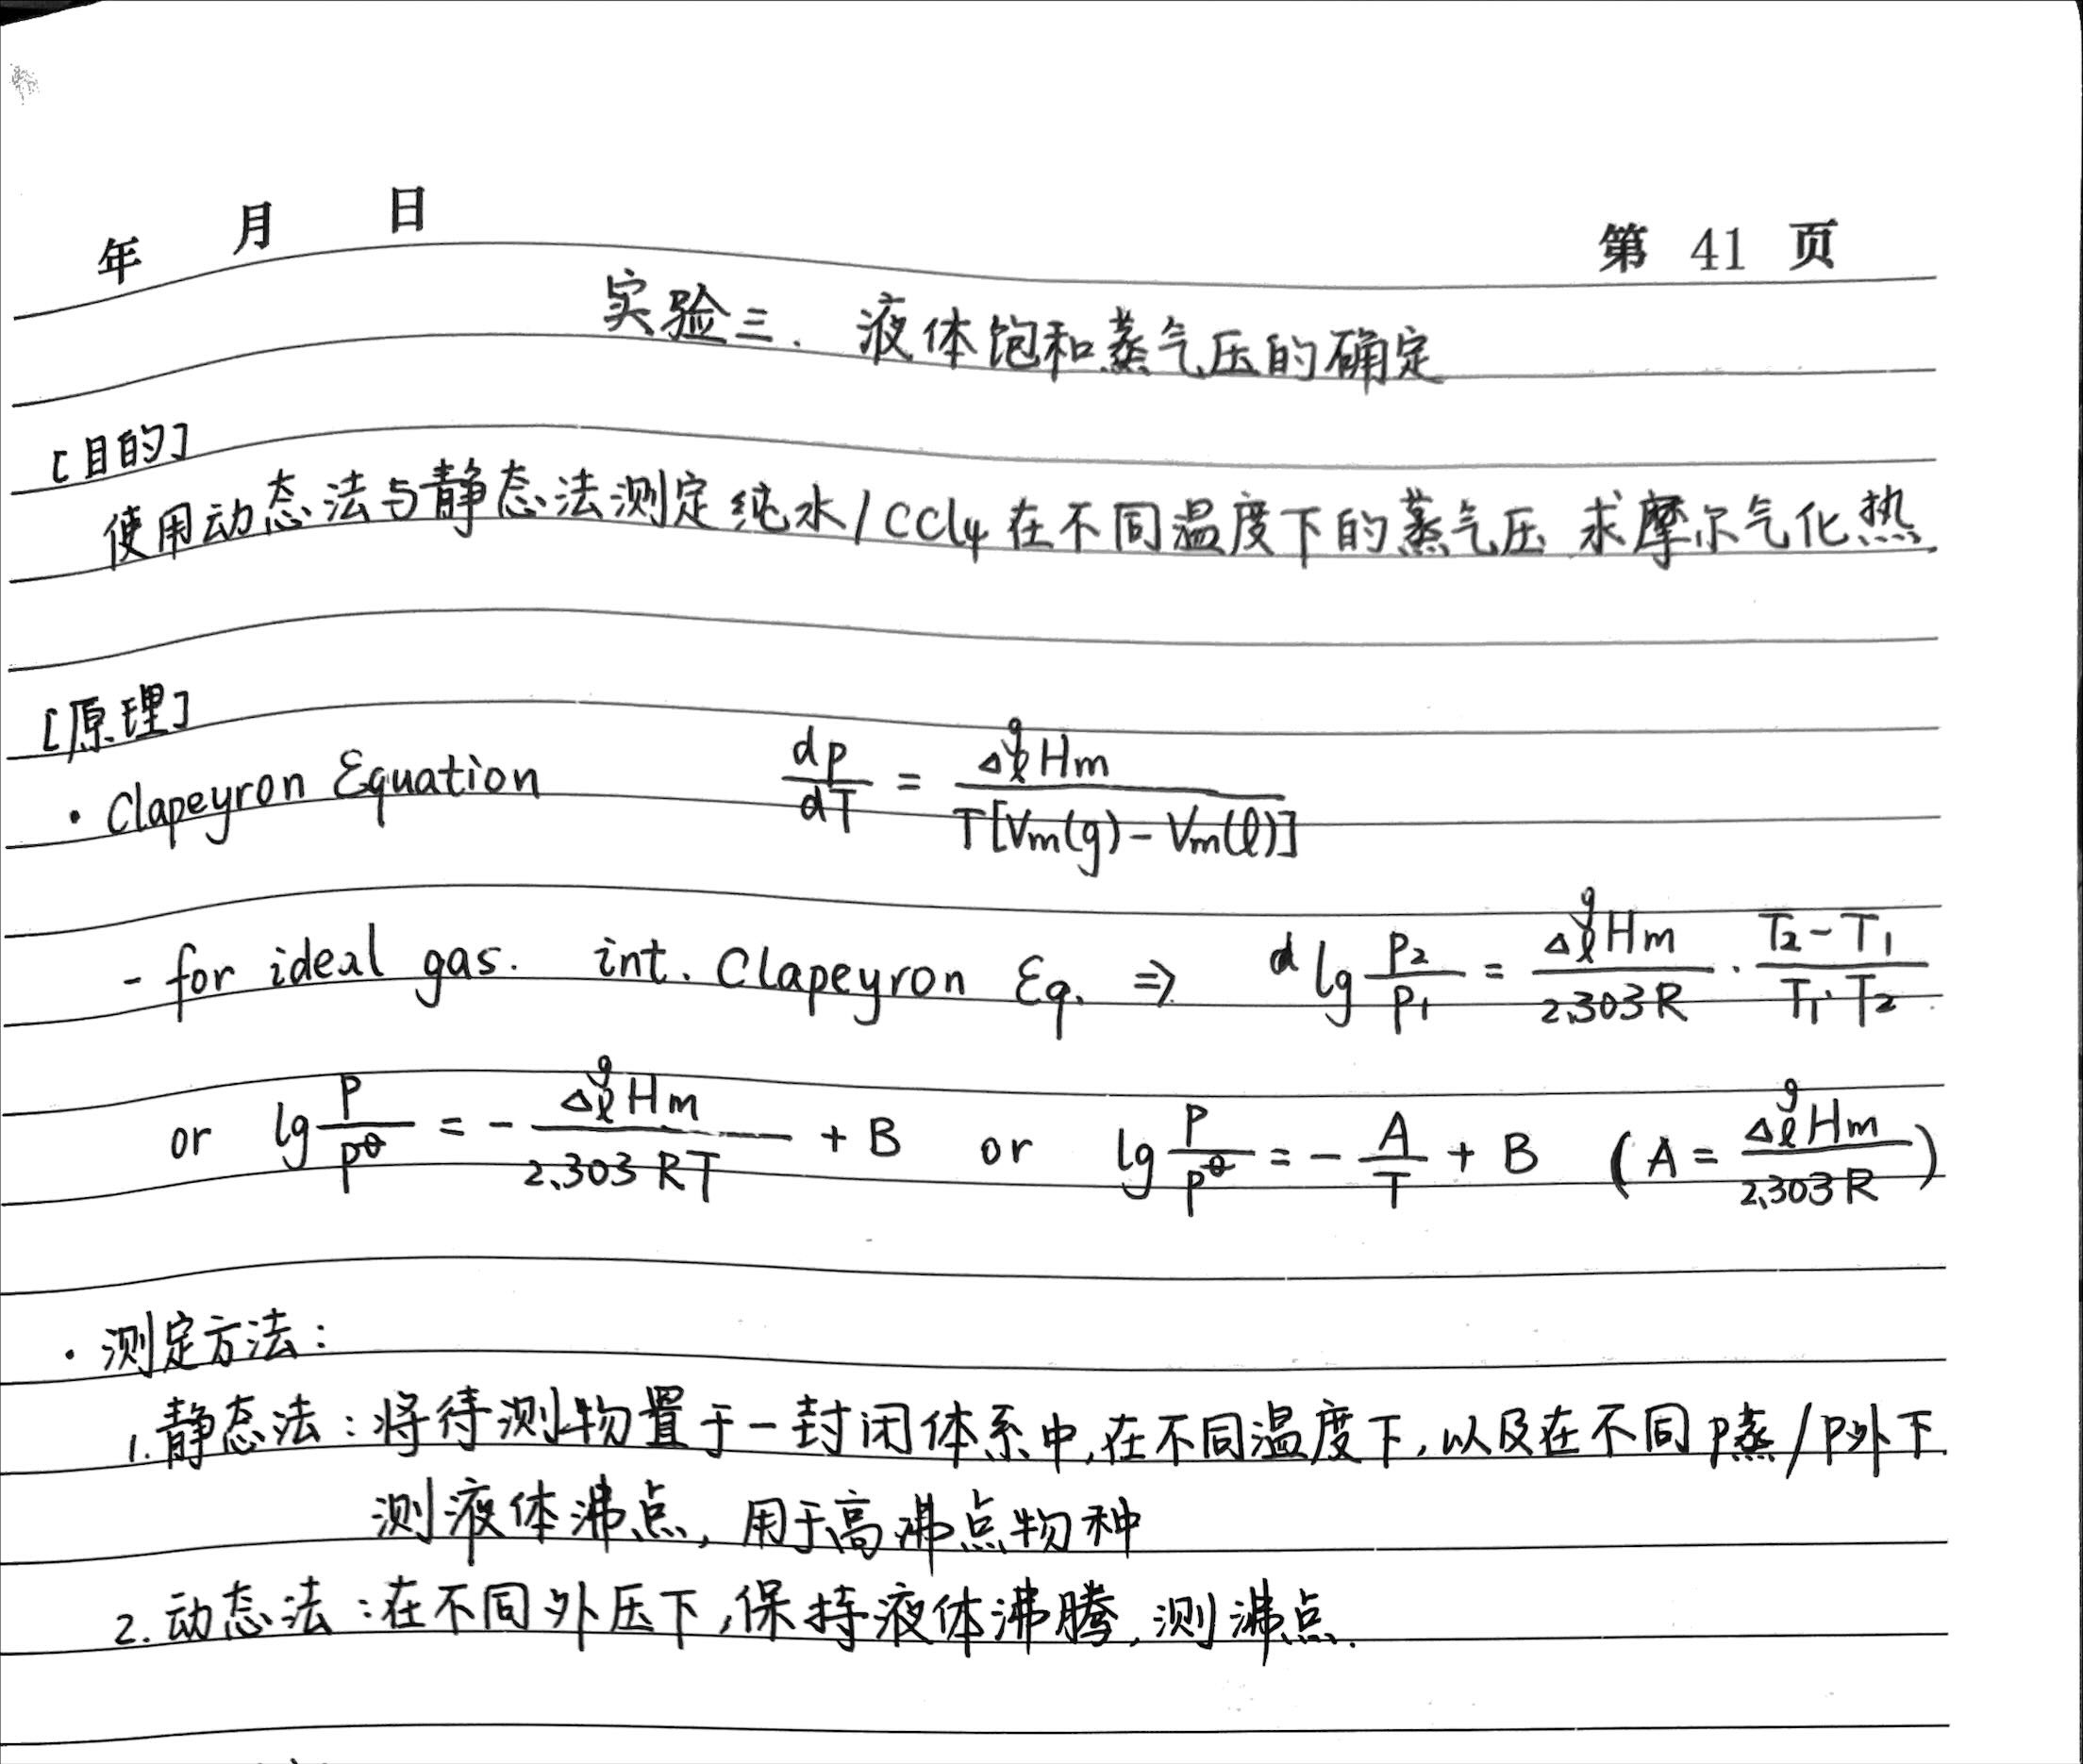 年 月 日 第 41 页
实验三. 液体饱和蒸气压的确定
[目的]
使用动态法与静态法测定纯水/CCl₄在不同温度下的蒸气压 求摩尔气化热.
[原理]
· Clapeyron Equation dp/dT = ΔₗᵍHm / T[Vm(g) - Vm(l)]
- for ideal gas. int. Clapeyron Eq. ⇒ d lg p₂/p₁ = ΔₗᵍHm/2.303R · T₂-T₁/T₁·T₂
or lg P/P^θ = - ΔₗᵍHm/2.303RT + B or lg P/P^θ = - A/T + B (A = ΔₗᵍHm/2.303R)
· 测定方法:
1. 静态法:将待测物置于一封闭体系中,在不同温度下,以及在不同P蒸/P外下.
测液体沸点,用于高沸点物种
2. 动态法:在不同外压下,保持液体沸腾,测沸点.